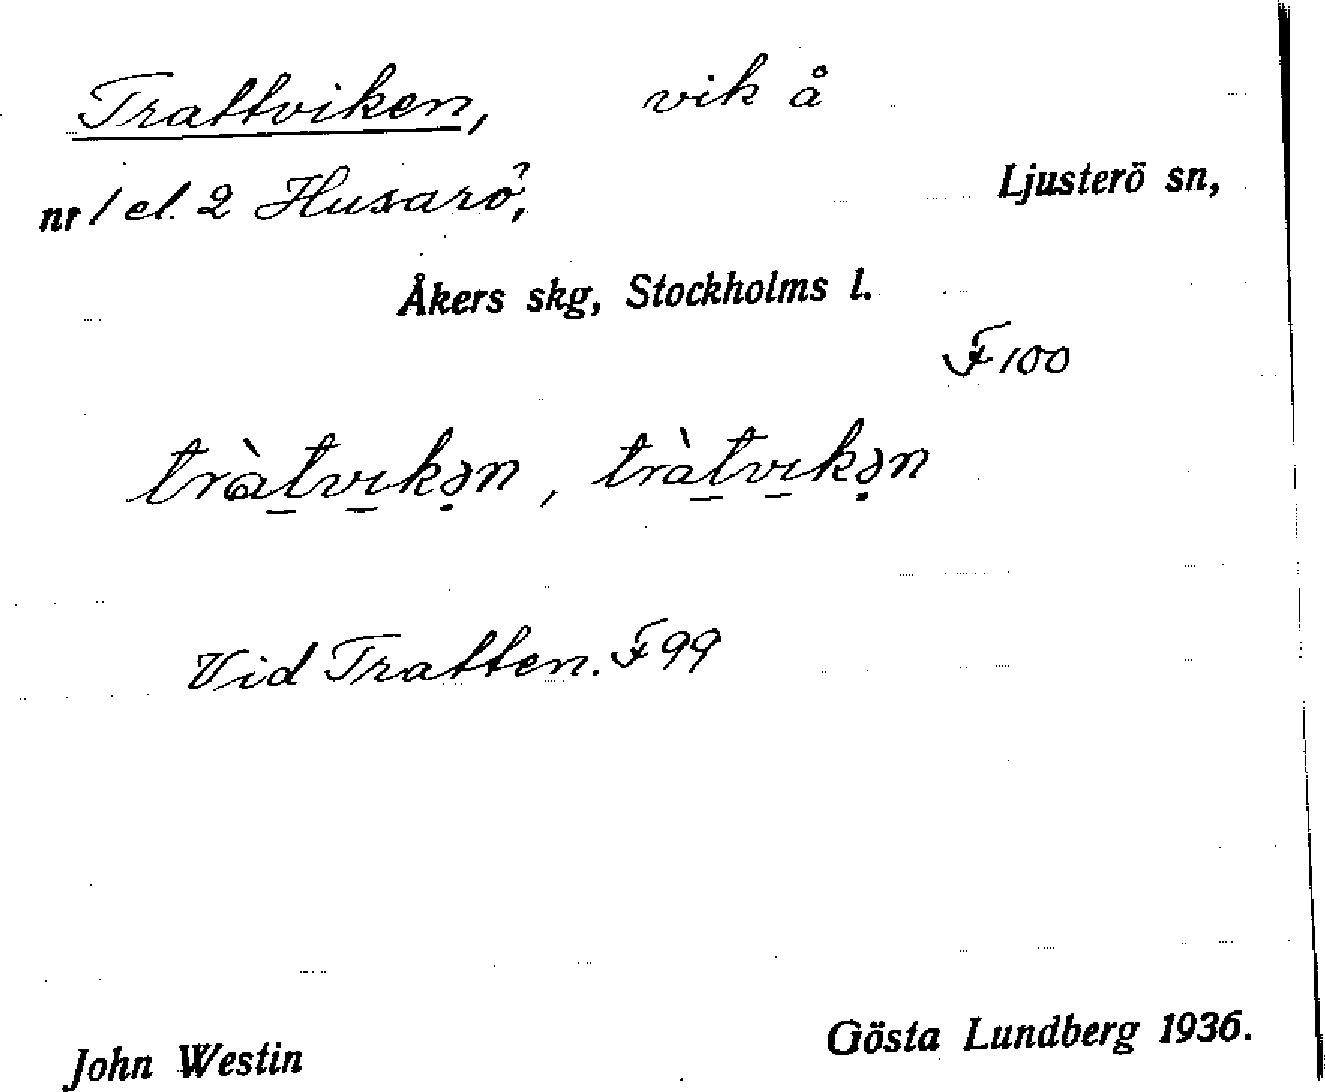 Trattviken, vik å
nr 1 el. 2 Husarö, Ljusterö sn,
Åkers skg, Stockholms l.
F 100
tràt̠vı̠kə̣n, tràt̠vı̠kə̣n
Vid Tratten. F 99
John Westin Gösta Lundberg 1936.